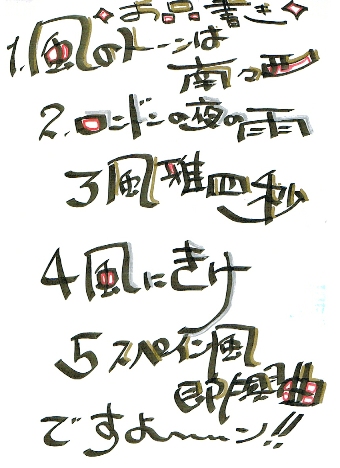 お品書き
1.風のトーンは
南っ西
2.ロンドンの夜の雨
3風雅四秒
4風にきけ
5スペイン風
即興曲
ですよ〜〜ン!!